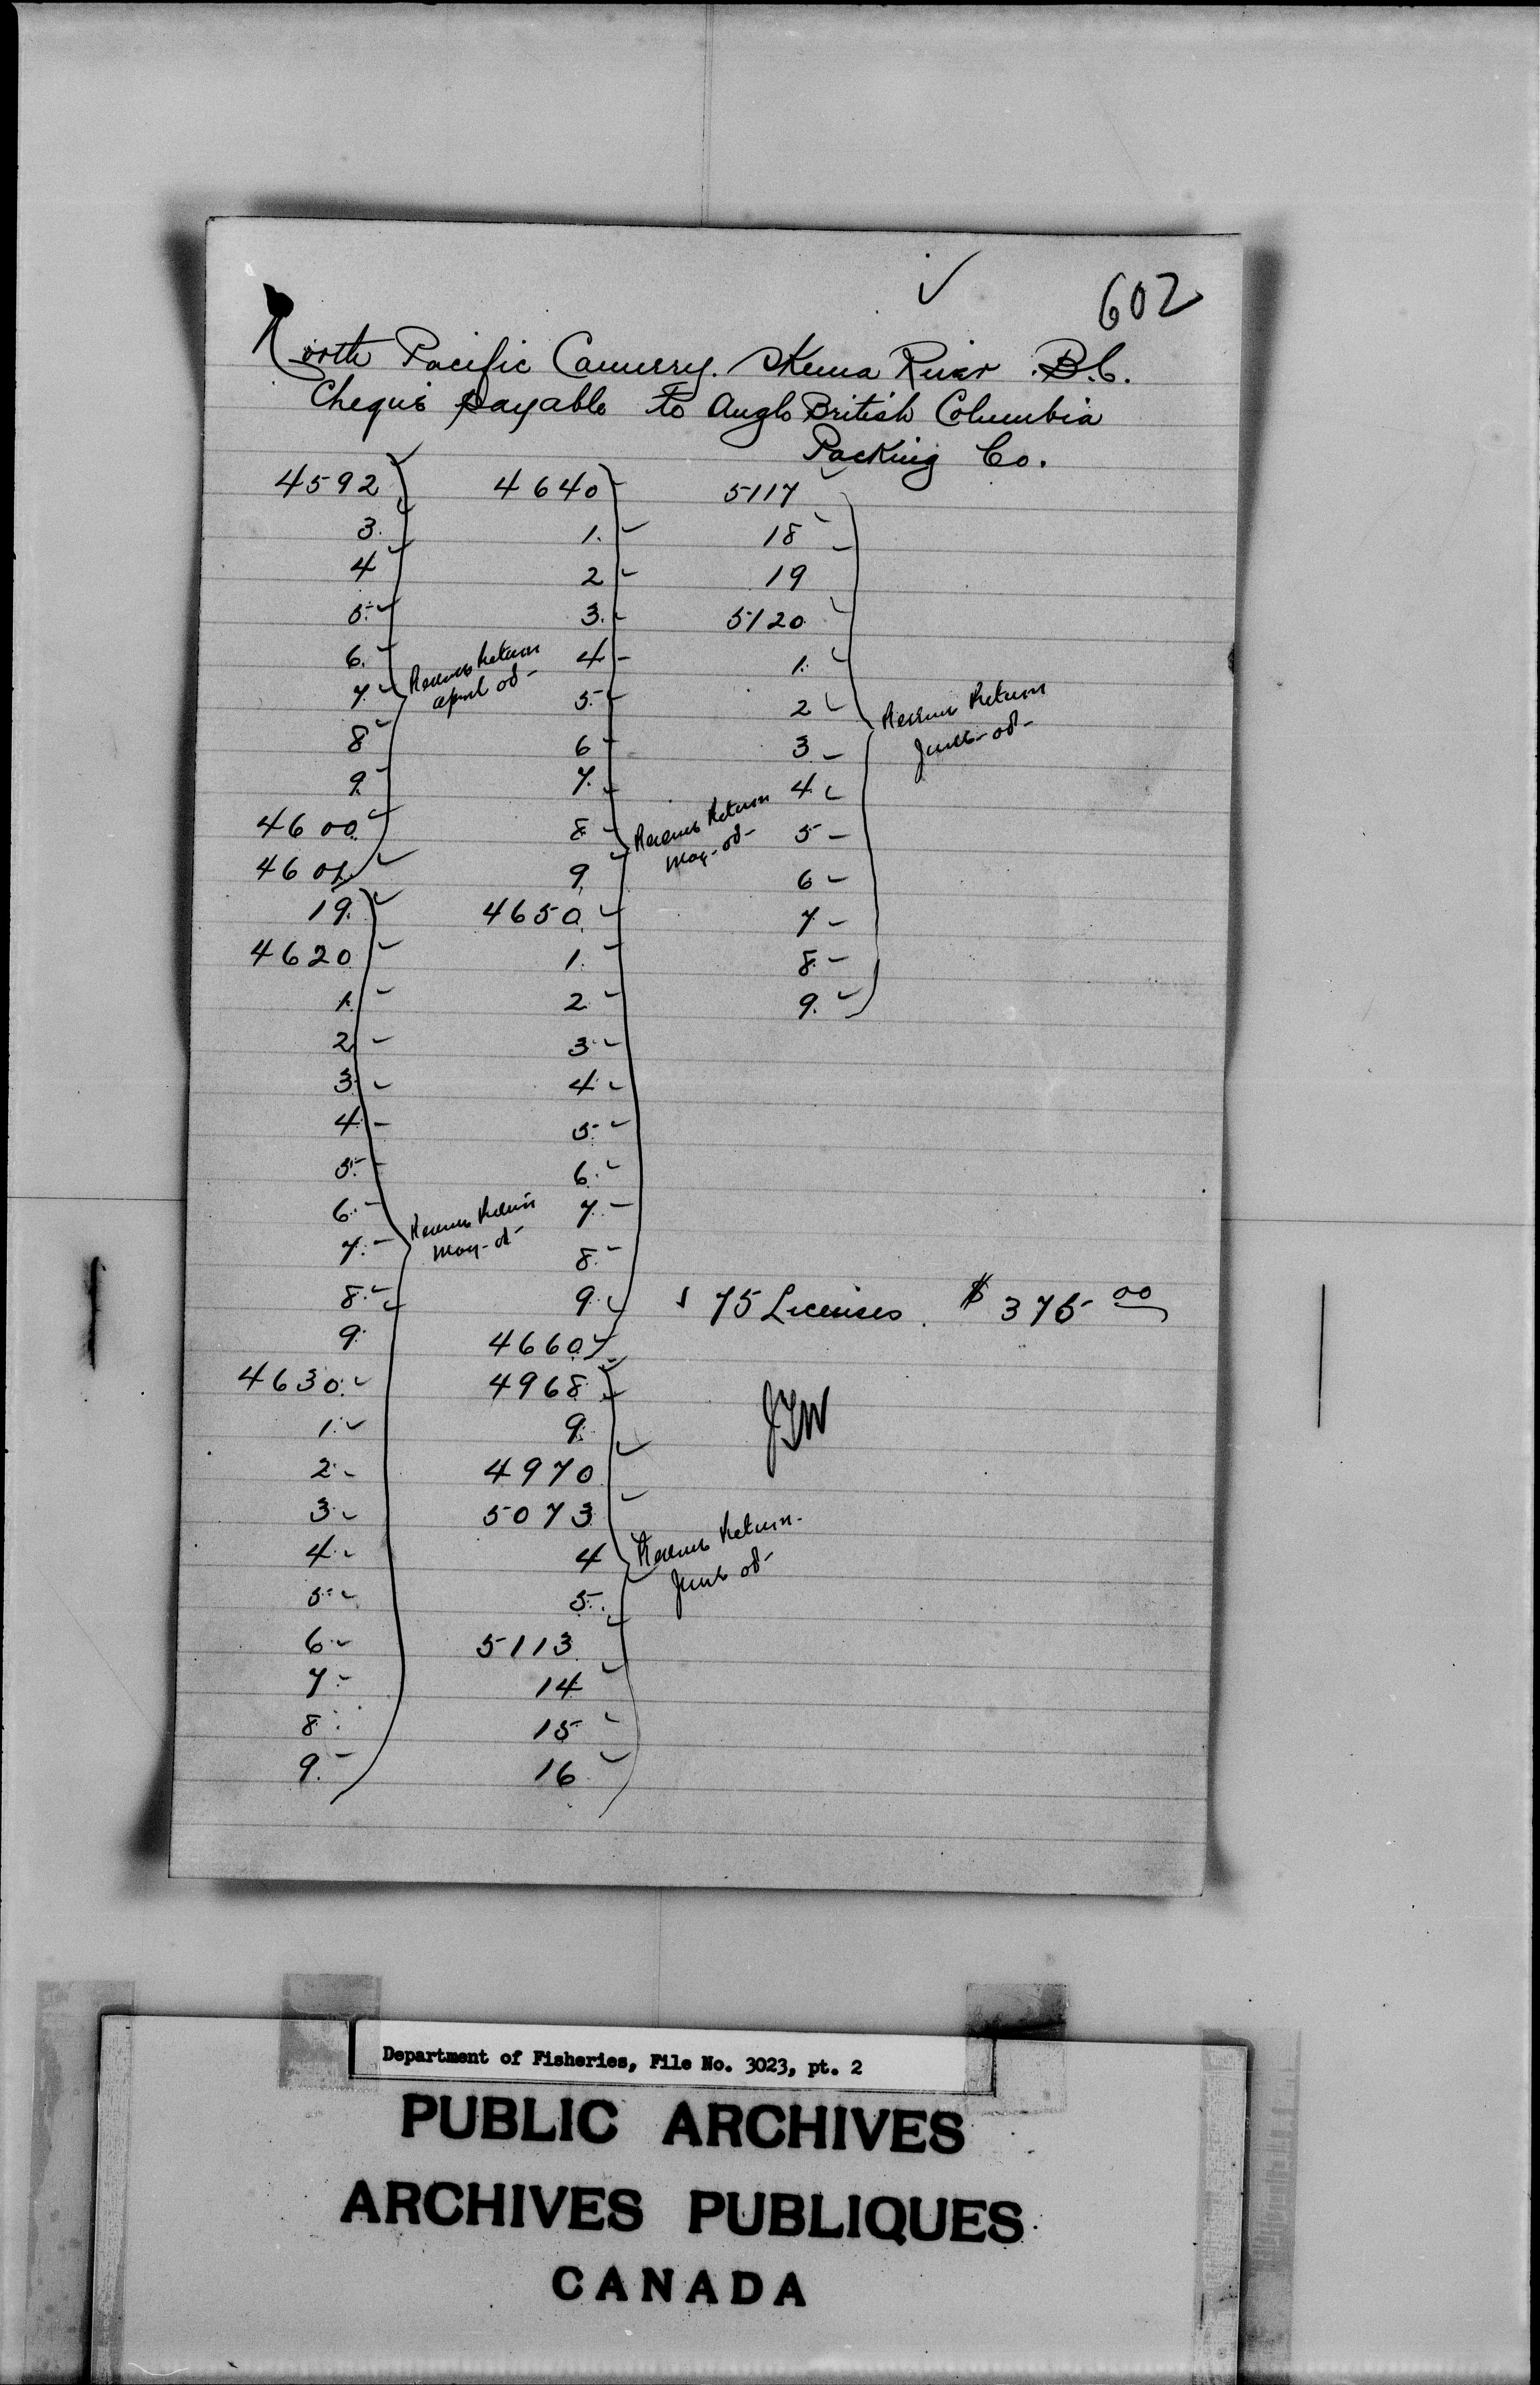 602
North Pacific Cannery. Skeena River B.C.
Cheque payable to Anglo British Columbia
Packing Co.
4592
3.
4
5.
6.
7
8
9
4600
4601
19.
4620
1.
2
3.
4
5.
6.
7.
8.
9.
4630.
1.
2.
3.
4.
5.
6.
7.
8.
9.
Revenue Return
April 08
Revenue Return
May - 08
4640
1.
2
3.
4
5.
6
7.
8
9
4650
1.
2
3.
4.
5.
6.
7.
8.
9.
4660
4968
9.
4970
5073
4
5.
5113
14
15
16
Revenue Return
May - 08
Revenue Return
June 08
5117
18
19
5120
1.
2
3
4
5
6
7
8.
9.
Revenue Return
June - 08
75 Licenses. $ 375 00
JTW
Department of Fisheries, File No. 3023, pt. 2
PUBLIC ARCHIVES
ARCHIVES PUBLIQUES
CANADA